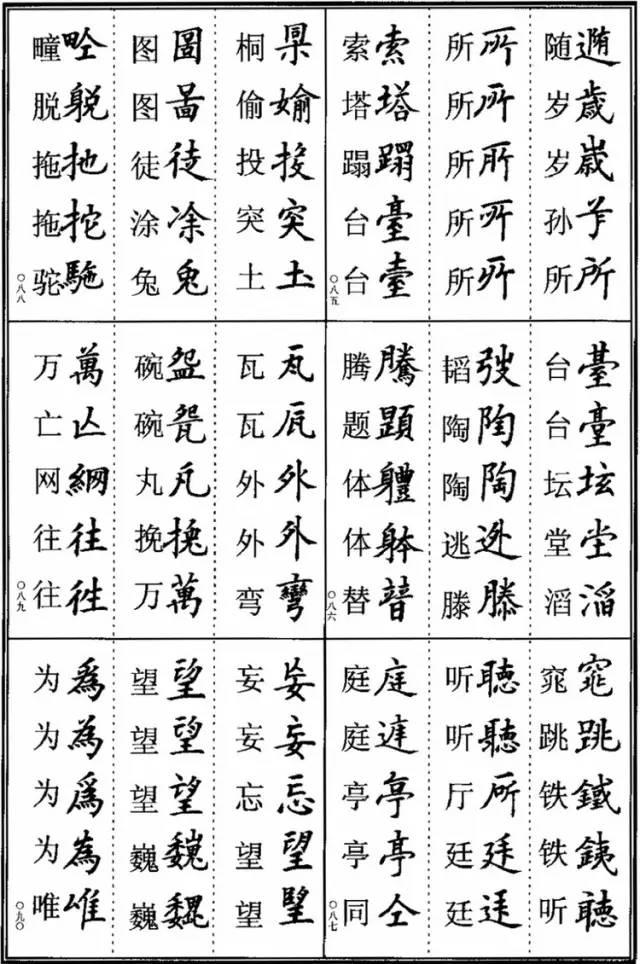 随
岁 歳
岁
孙
所 所
所
所 所
所
所
所
索 索
塔 塔
蹋 蹋
台 臺
台 臺
〇八五
台 臺
台 臺
坛 坛
堂
滔
韬 弢
陶 陶
陶 陶
逃
滕 滕
腾 騰
题
体 軆
体 躰
替
〇八六
窕 窕
跳 跳
铁 鐵
铁 銕
听 聴
听 聽
听 聽
厅 所
廷 廷
廷
庭 庭
庭
亭 亭
亭 亭
同 仝
〇八七
桐
偷 媮
投 投
突 突
土 土
图 圖
图 啚
徒 徒
涂 凃
兔 兔
疃
脱
拖 拖
拖
驼
〇八八
瓦 瓦
瓦
外 外
外 外
弯 彎
碗 盌
碗 䀀
丸
挽
万 萬
万 萬
亡 亾
网 網
往 往
往 徃
〇八九
妄 妄
妄 妄
忘 忘
望 望
望
望 望
望 望
望 望
巍 魏
巍
为 爲
为 為
为 爲
为 為
唯
〇九〇